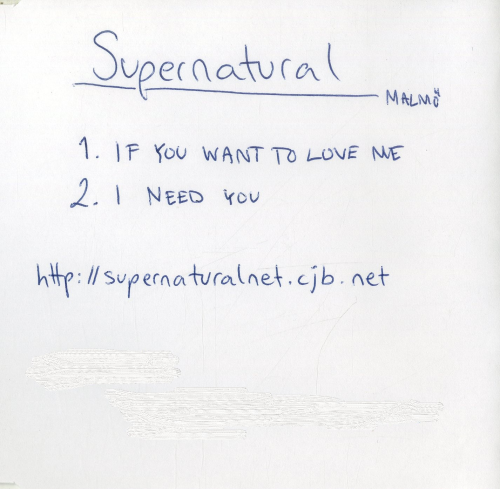 Supernatural
MALMÖ
1. IF YOU WANT TO LOVE ME
2. I NEED YOU
http://supernaturalnet.cjb.net